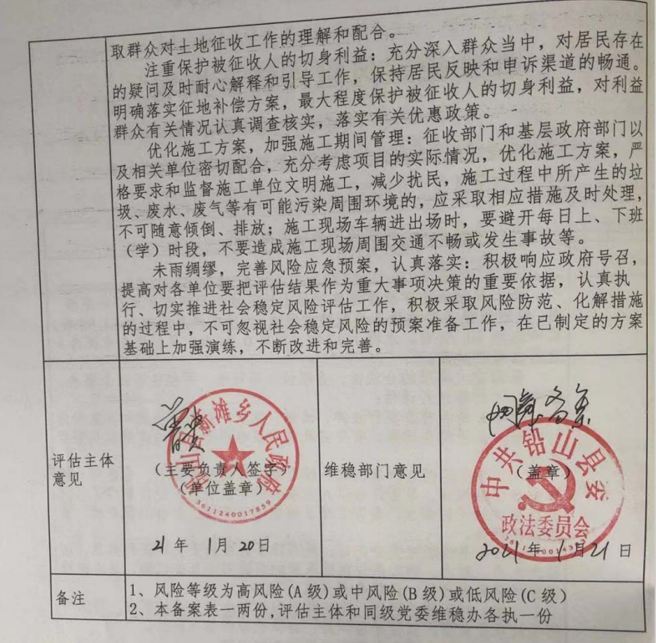 取群众对土地征收工作的理解和配合。
注重保护被征收人的切身利益：充分深入群众当中，对居民存在
的疑问及时耐心解释和引导工作，保持居民反映和申诉渠道的畅通。
明确落实征地补偿方案，最大程度保护被征收人的切身利益，对利益
群众有关情况认真调查核实，落实有关优惠政策。
优化施工方案，加强施工期间管理：征收部门和基层政府部门以
及相关单位密切配合，充分考虑项目的实际情况，优化施工方案，严
格要求和监督施工单位文明施工，减少扰民，施工过程中所产生的垃
圾、废水、废气等有可能污染周围环境的，应采取相应措施及时处理，
不可随意倾倒、排放；施工现场车辆进出场时，要避开每日上、下班
（学）时段，不要造成施工现场周围交通不畅或发生事故等。
未雨绸缪，完善风险应急预案，认真落实：积极响应政府号召，
提高对各单位要把评估结果作为重大事项决策的重要依据，认真执
行、切实推进社会稳定风险评估工作，积极采取风险防范、化解措施
的过程中，不可忽视社会稳定风险的预案准备工作，在已制定的方案
基础上加强演练，不断改进和完善。
评估主体
意见
铅山县新滩乡人民政府
（主要负责人签字）
（单位盖章）
3611240017859
21 年 1月 20日
维稳部门意见
同意备案
中共铅山县委
（盖章）
政法委员会
2021年 1月 21日
备注
1、风险等级为高风险(A 级)或中风险(B 级)或低风险(C 级)
2、本备案表一两份,评估主体和同级党委维稳办各执一份